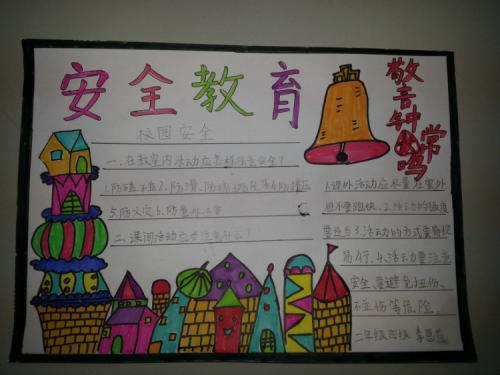 安全教育
警钟常鸣
校园安全
一.在教室内活动应怎样注意安全?
5.防火灾6.防意外伤害
二.课间活动应当注意什么!
1.课外活动应尽量在室外
但不要跑快.2.活动的强度
要适当3.活动的方式要简便
易行.4.活动要注意
安全,要避免扭伤、
等危险.
二年级四班 李